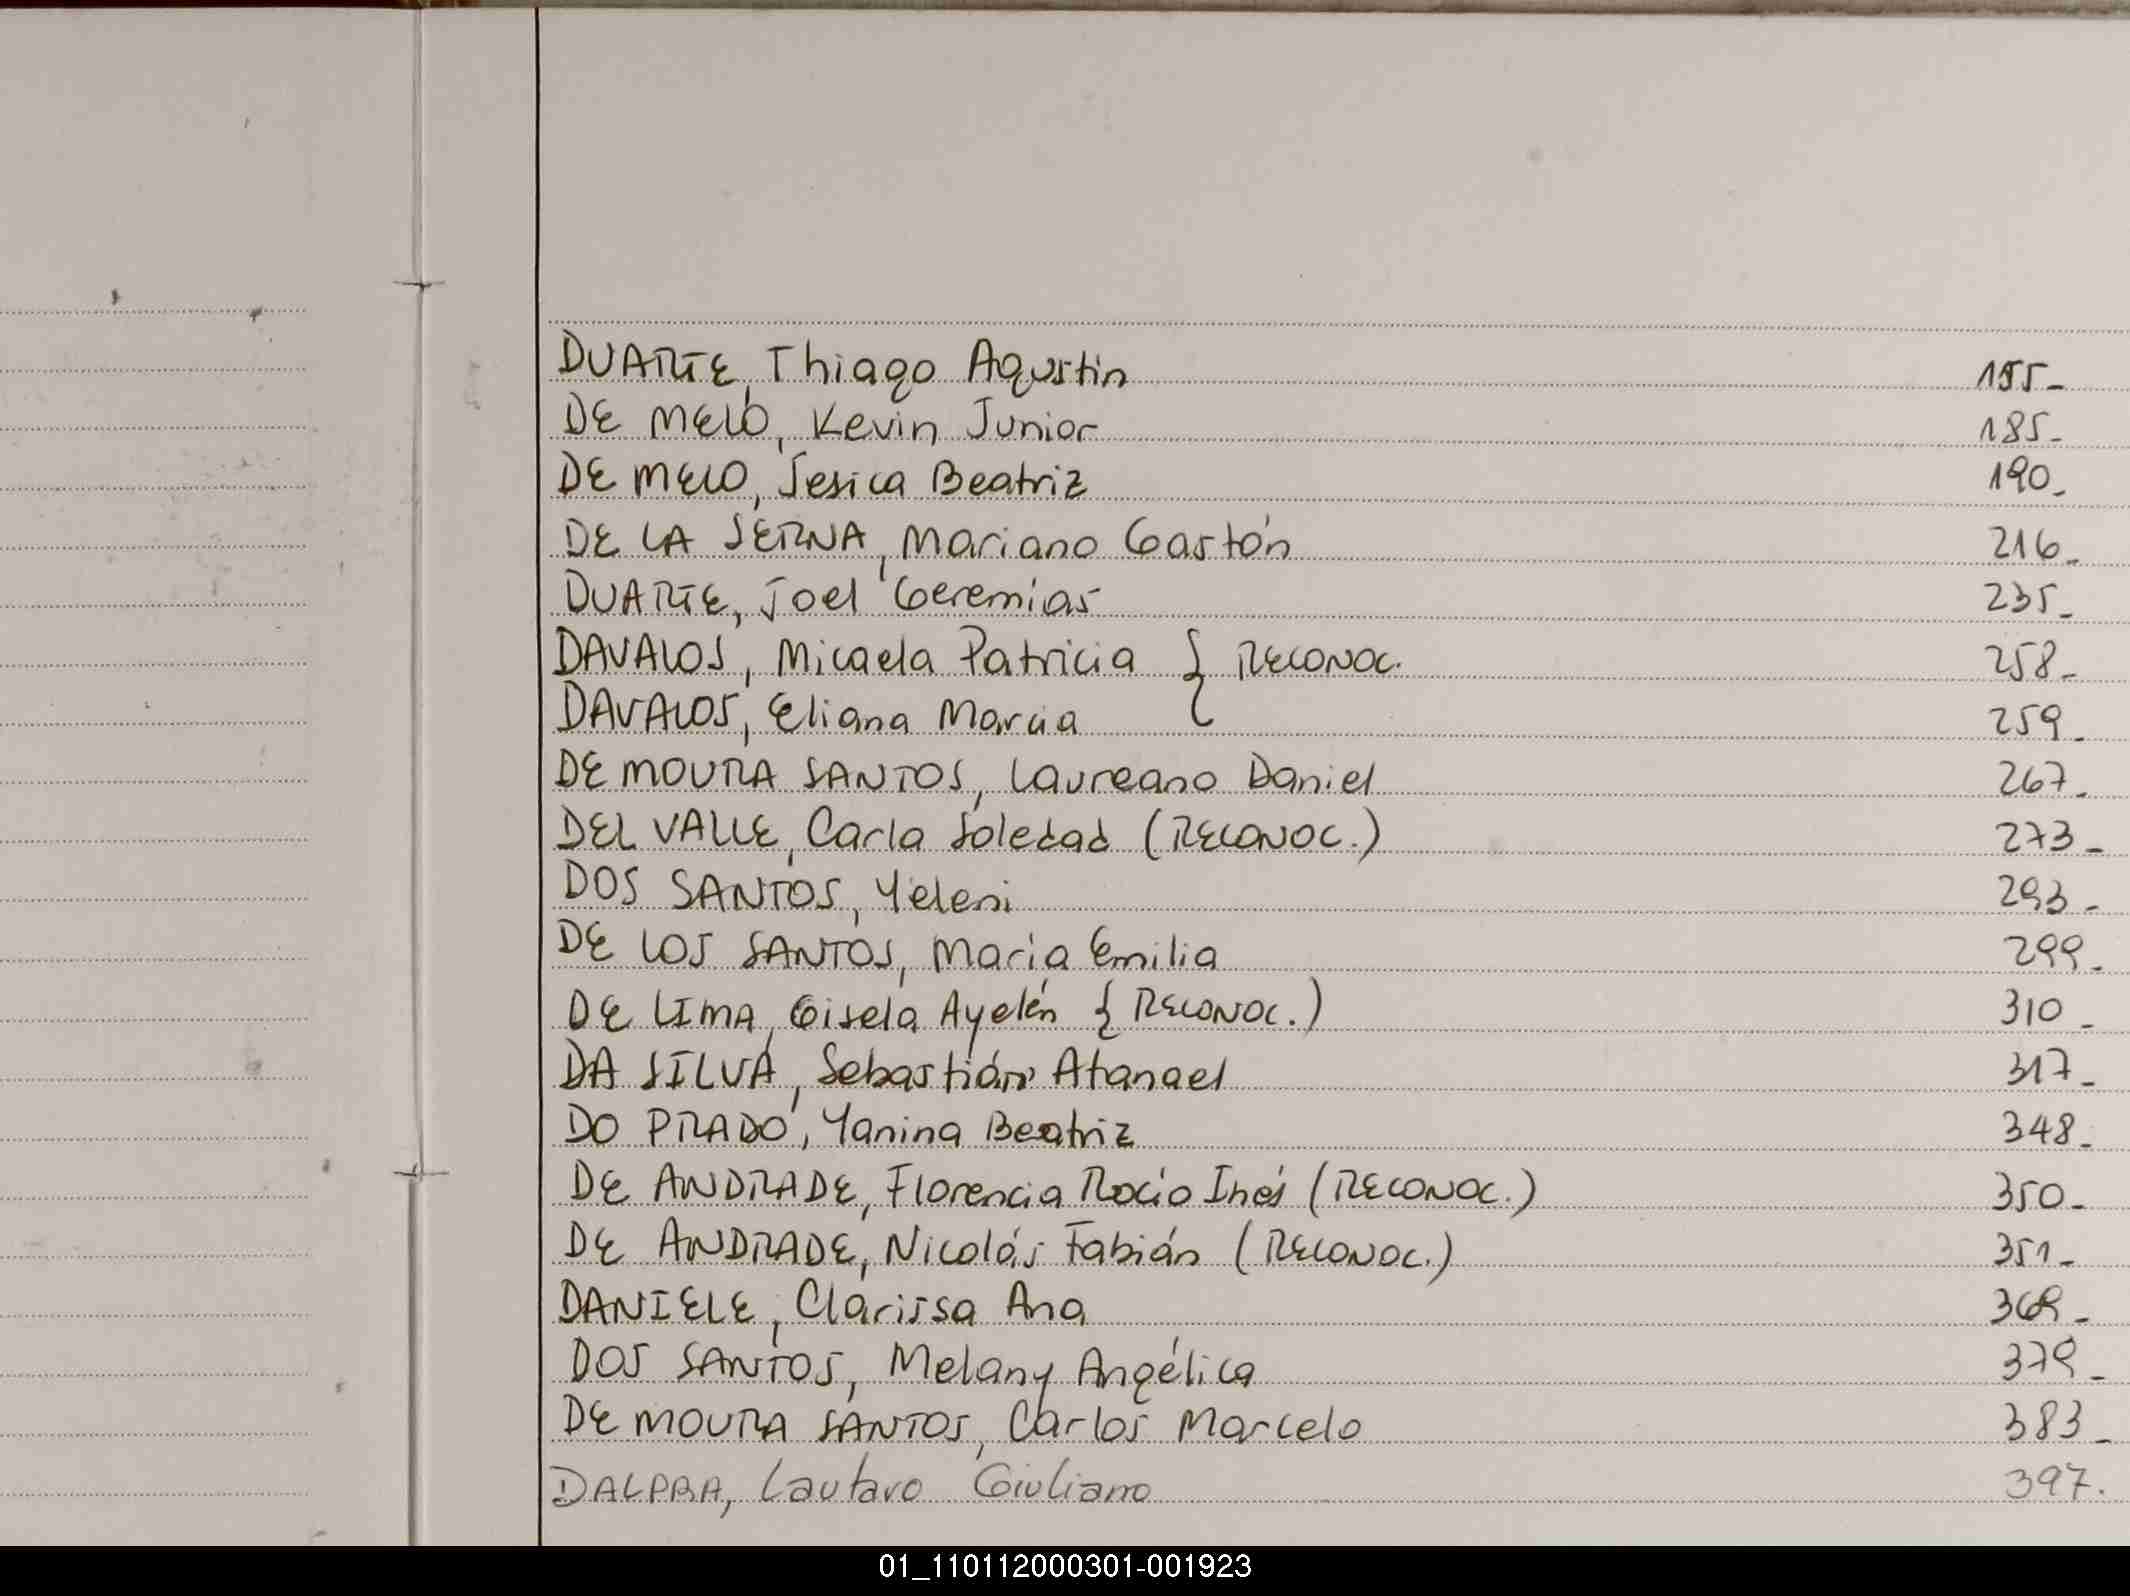 DUARTE, Thiago Agustin 155-
DE MELO, Kevin Junior 185-
DE MELO, Jesica Beatriz 190-
DE LA SERNA, Mariano Gastón 216-
DUARTE, Joel Geremías 235-
DAVALOS, Micaela Patricia { RECONOC. 258-
DAVALOS, Eliana Marcia 259-
DE MOURA SANTOS, Laureano Daniel 267-
DEL VALLE, Carla Soledad (RECONOC.) 273-
DOS SANTOS, Yeleni 293-
DE LOS SANTOS, María Emilia 299-
DE LIMA, Gisela Ayelén { RECONOC.) 310-
DA SILVA, Sebastián Atanael 317-
DO PRADO, Yanina Beatriz 348-
DE ANDRADE, Florencia Rocío Inés (RECONOC.) 350-
DE ANDRADE, Nicolás Fabián (RECONOC.) 351-
DANIELE, Clarissa Ana
DOS SANTOS, Melany Angélica 379-
DE MOURA SANTOS, Carlos Marcelo 383-
DALPRA, Lautaro Giuliano 397.
01_110112000301-001923